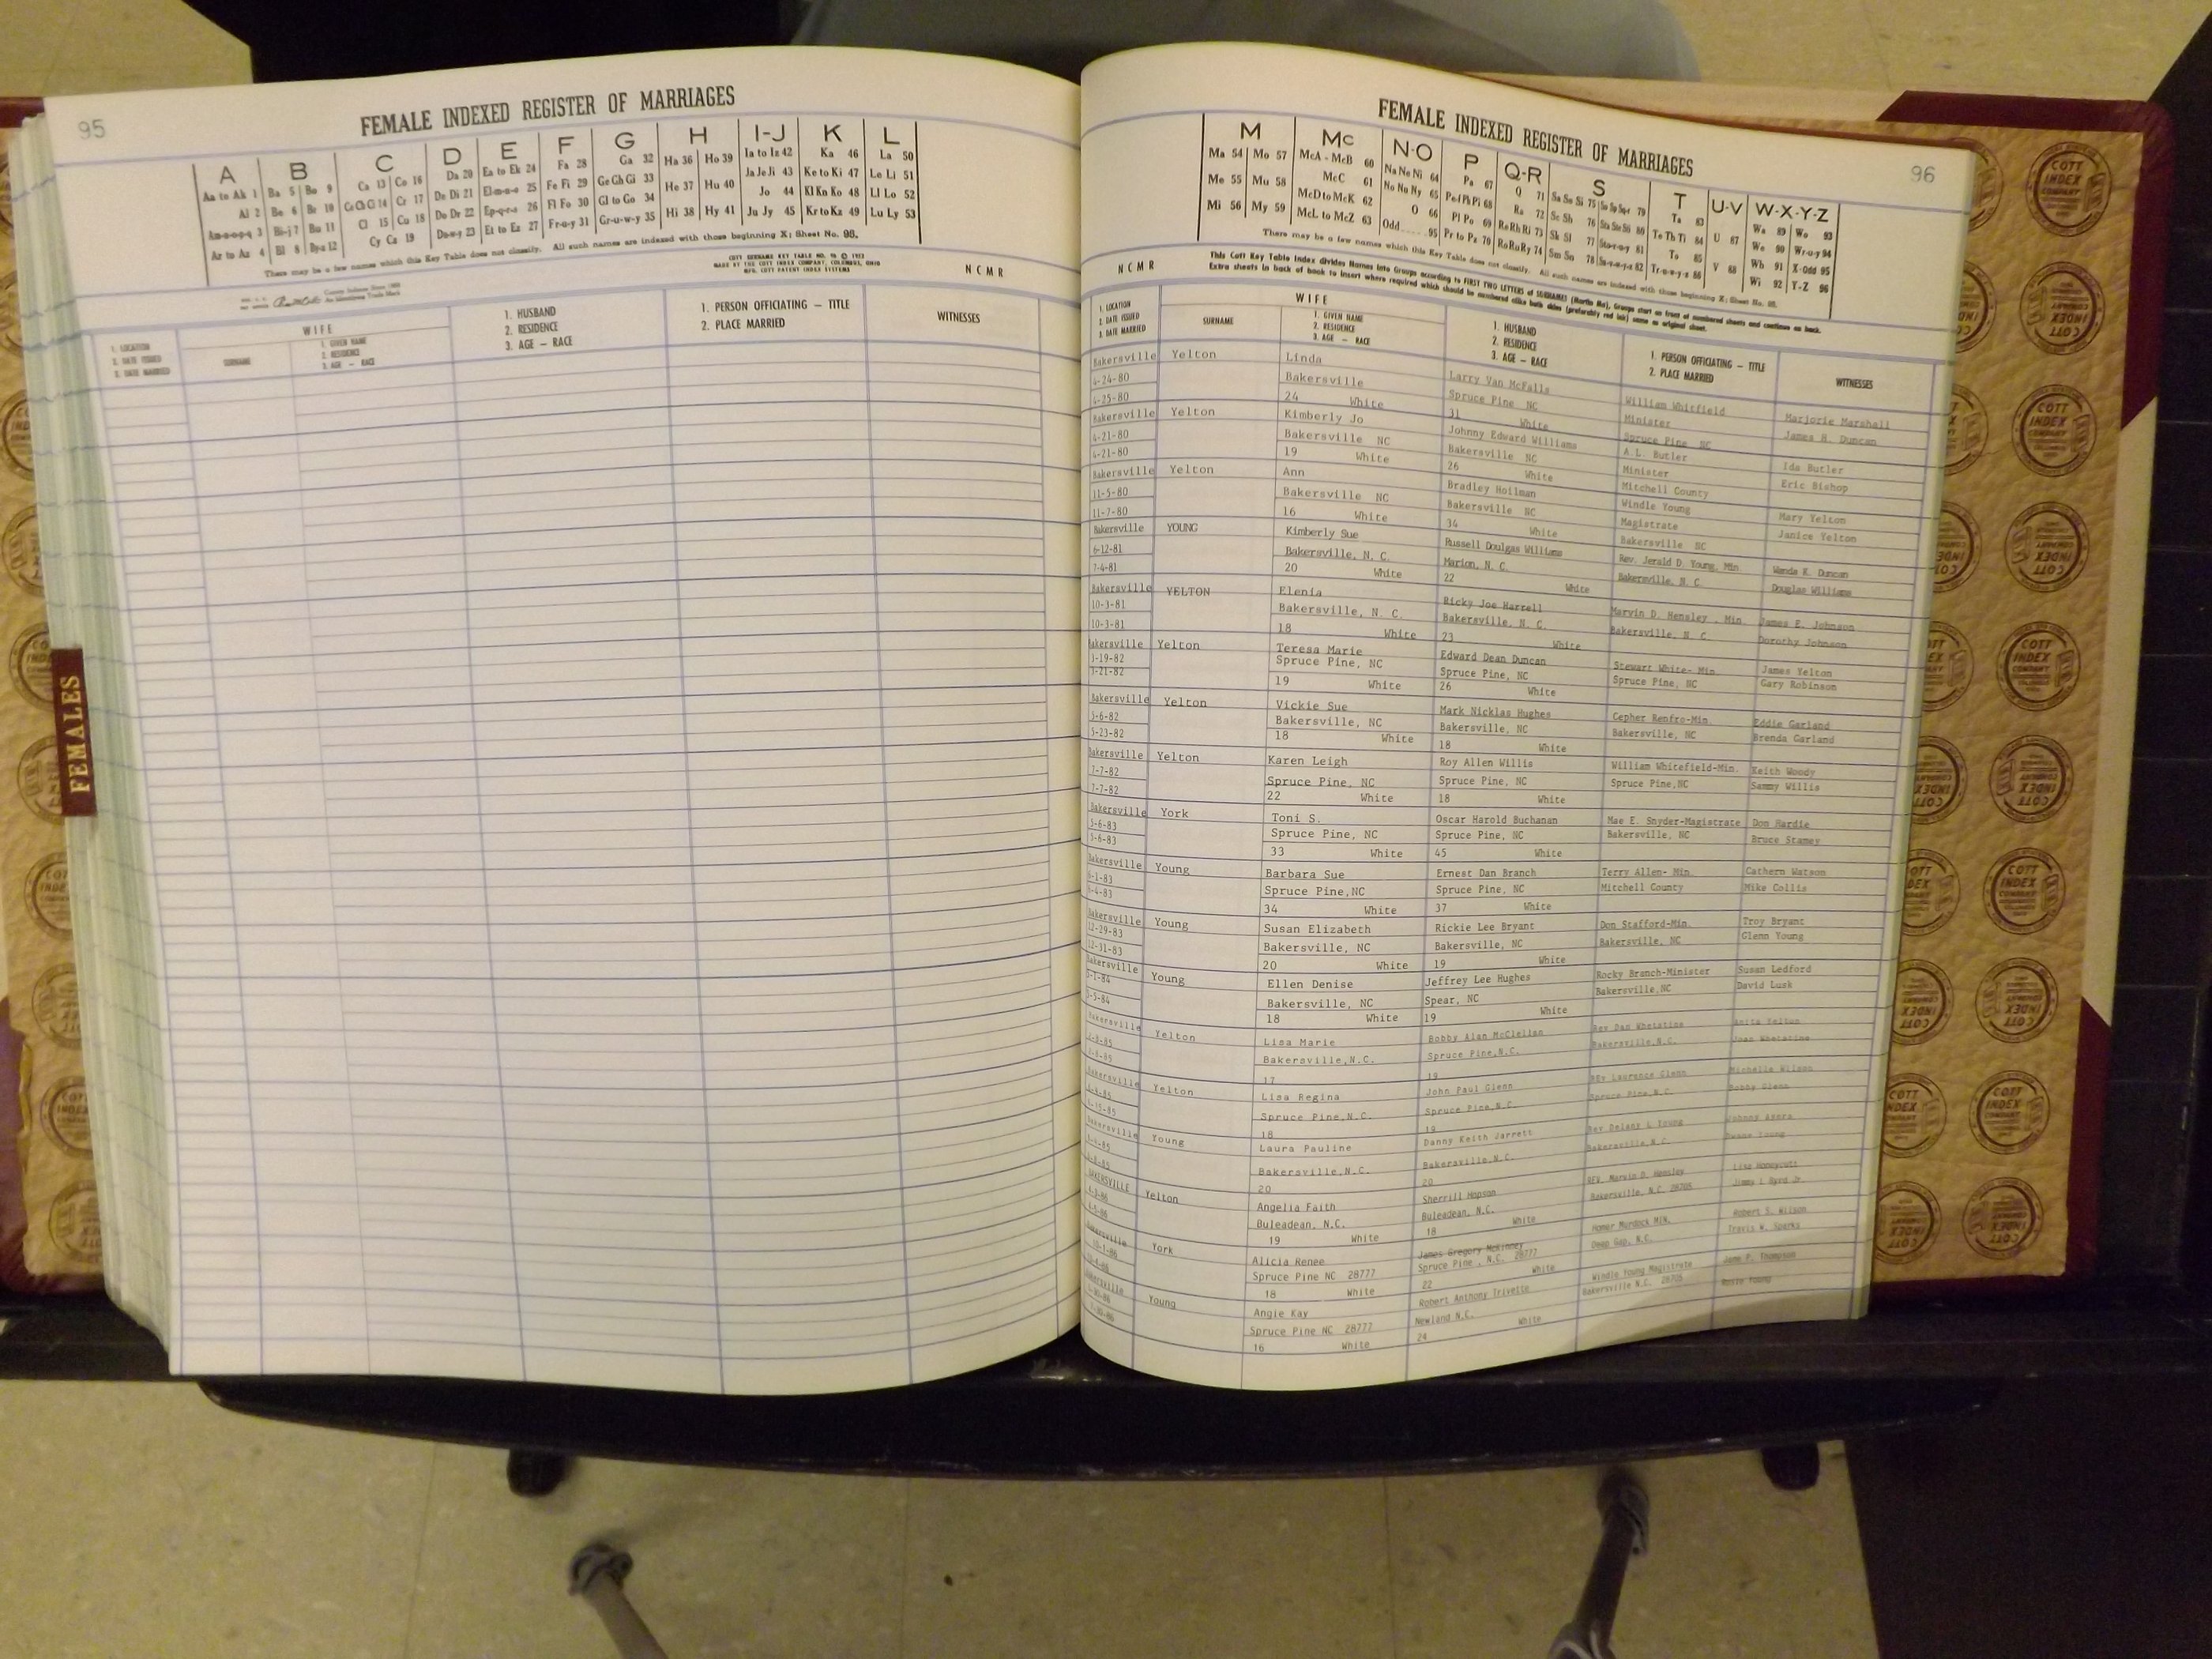 95
FEMALE INDEXED REGISTER OF MARRIAGES
A B C D E F G H I-J K L
Aa to Ak 1 Ba 5 Bo 9 Ca 13 Co 16 Da 20 Ea to Ek 24 Fa 28 Ga 32 Ha 36 Ho 39 Ia to Iz 42 Ka 46 La 50
Al 2 Be 6 Br 10 Ce Ch Ci 14 Cr 17 De Di 21 El-m-n-o 25 Fe Fi 29 Ge Gh Gi 33 He 37 Hu 40 Ja Je Ji 43 Ke to Ki 47 Le Li 51
Am-n-o-p-q 3 Bi-j 7 Bu 11 Cl 15 Cu 18 Do Dr 22 Ep-q-r-s 26 Fl Fo 30 Gl to Go 34 Hi 38 Hy 41 Jo 44 Kl Kn Ko 48 Ll Lo 52
Ar to Az 4 Bl 8 By-z 12 Cy Cz 19 Du-w-y 23 Et to Ez 27 Fr-u-y 31 Gr-u-w-y 35 Ju Jy 45 Kr to Kz 49 Lu Ly 53
There may be a few names which this Key Table does not classify. All such names are indexed with those beginning X; Sheet No. 95.
COTT SURNAME KEY TABLE NO. 96
MADE BY THE COTT INDEX COMPANY, COLUMBUS, OHIO
MFG. COTT PATENT INDEX SYSTEMS
NCMR
1. LOCATION
2. DATE ISSUED
3. DATE MARRIED
WIFE
SURNAME
1. GIVEN NAME
2. RESIDENCE
3. AGE — RACE
1. HUSBAND
2. RESIDENCE
3. AGE — RACE
1. PERSON OFFICIATING — TITLE
2. PLACE MARRIED
WITNESSES
FEMALES
FEMALE INDEXED REGISTER OF MARRIAGES
96
M Mc N-O P Q-R S T U-V W-X-Y-Z
Ma 54 Mo 57 McA - McB 60 Na Ne Ni 64 Pa 67 Q 71 Sa So Si 75 Ta 83 U 87 Wa 89 Wo 93
Me 55 Mu 58 McC 61 No Nu Ny 65 Pe-f Ph Pi 68 Ra 72 Sc Sh 76 Te Th Ti 84 V 88 We 90 Wr-u-y 94
Mi 56 My 59 McD to McK 62 O 66 Pl Po 69 Re Rh Ri 73 Sk Sl 77 To 85 Wh 91 X-Odd 95
McL to McZ 63 Odd 95 Pr to Pz 70 Ro Ru Ry 74 Sm Sn 78 Tr-u-w-y 86 Wi 92 Y-Z 96
There may be a few names which this Key Table does not classify. All such names are indexed with those beginning X; Sheet No. 95.
This Cott Key Table Index divides Names into Groups according to FIRST TWO LETTERS of SURNAMES (Martin Ma). Groups start on front of numbered sheets and continue on back.
Extra sheets in back of book to insert where required which should be numbered alike both sides (preferably red ink) same as original sheet.
NCMR
1. LOCATION
2. DATE ISSUED
3. DATE MARRIED
WIFE
SURNAME
1. GIVEN NAME
2. RESIDENCE
3. AGE — RACE
1. HUSBAND
2. RESIDENCE
3. AGE — RACE
1. PERSON OFFICIATING — TITLE
2. PLACE MARRIED
WITNESSES
Bakersville Yelton Linda Larry Van McFalls William Whitfield Marjorie Marshall
4-24-80 Bakersville Spruce Pine NC Minister James H. Duncan
4-25-80 24 White 31 White Spruce Pine NC
Bakersville Yelton Kimberly Jo Johnny Edward Williams A.L. Butler Ida Butler
4-21-80 Bakersville NC Bakersville NC Minister Eric Bishop
4-21-80 19 White 26 White Mitchell County
Bakersville Yelton Ann Bradley Hoilman Windle Young Mary Yelton
11-5-80 Bakersville NC Bakersville NC Magistrate Janice Yelton
11-7-80 16 White 34 White Bakersville NC
Bakersville YOUNG Kimberly Sue Russell Doulgas Williams Rev. Jerald D. Young, Min. Wanda K. Duncan
6-12-81 Bakersville, N. C. Marion, N. C. Bakersville, N. C. Douglas Williams
7-4-81 20 White 22 White
Bakersville YELTON Elenia Ricky Joe Harrell Marvin D. Hensley , Min. James E. Johnson
10-3-81 Bakersville, N. C. Bakersville, N. C. Bakersville, N. C. Dorothy Johnson
10-3-81 18 White 23 White
Bakersville Yelton Teresa Marie Edward Dean Duncan Stewart White- Min. James Yelton
-19-82 Spruce Pine, NC Spruce Pine, NC Spruce Pine, NC Gary Robinson
-21-82 19 White 26 White
Bakersville Yelton Vickie Sue Mark Nicklas Hughes Cepher Renfro-Min. Eddie Garland
5-6-82 Bakersville, NC Bakersville, NC Bakersville, NC Brenda Garland
5-23-82 18 White 18 White
Bakersville Yelton Karen Leigh Roy Allen Willis William Whitefield-Min. Keith Woody
7-7-82 Spruce Pine, NC Spruce Pine, NC Spruce Pine,NC Sammy Willis
7-7-82 22 White 18 White
Bakersville York Toni S. Oscar Harold Buchanan Mae E. Snyder-Magistrate Don Hardie
-6-83 Spruce Pine, NC Spruce Pine, NC Bakersville, NC Bruce Stamey
-6-83 33 White 45 White
Bakersville Young Barbara Sue Ernest Dan Branch Terry Allen- Min. Cathern Watson
-1-83 Spruce Pine,NC Spruce Pine, NC Mitchell County Mike Collis
-4-83 34 White 37 White
Bakersville Young Susan Elizabeth Rickie Lee Bryant Don Stafford-Min. Troy Bryant
12-29-83 Bakersville, NC Bakersville, NC Bakersville, NC Glenn Young
12-31-83 20 White 19 White
Bakersville Young Ellen Denise Jeffrey Lee Hughes Rocky Branch-Minister Susan Ledford
-1-84 Bakersville, NC Spear, NC Bakersville,NC David Lusk
-5-84 18 White 19 White
Bakersville Yelton Lisa Marie Bobby Alan McClellan Rev Dan Whetstine Anita Yelton
-8-85 Bakersville,N.C. Spruce Pine,N.C. Bakersville,N.C. Whetstine
-8-85 17 19
Bakersville Yelton Lisa Regina John Paul Glenn REv Laurence Glenn Michelle Wilson
Spruce Pine,N.C. Spruce Pine,N.C. Spruce Pine,N.C. Bobby Glenn
-15-85 18 19
Bakersville Young Laura Pauline Danny Keith Jarrett Rev Young
Bakersville,N.C. Bakersville,N.C. Bakersville,N.C. Young
20 20
BAKERSVILLE Yelton Angelia Faith Sherrill Hopson REV. Marvin D. Hensley Lisa Honeycutt
4-3-86 Buleadean, N.C. Buleadean, N.C. Bakersville, N.C. 28705 Jimmy L Byrd Jr.
4-5-86 19 White 18 White
Bakersville York Alicia Renee James Gregory McKinney Homer Murdock Min. Robert S. Wilson
10-1-86 Spruce Pine NC 28777 Spruce Pine , N.C. 28777 Deep Gap, N.C. Travis W. Sparks
18 White 22 White
Bakersville Young Angie Kay Robert Anthony Trivette Windle Young Magistrate Jane P. Thompson
-30-86 Spruce Pine NC 28777 Newland N.C. Bakersville N.C. 28705 Young
-30-86 16 White 24 White
COTT INDEX COMPANY